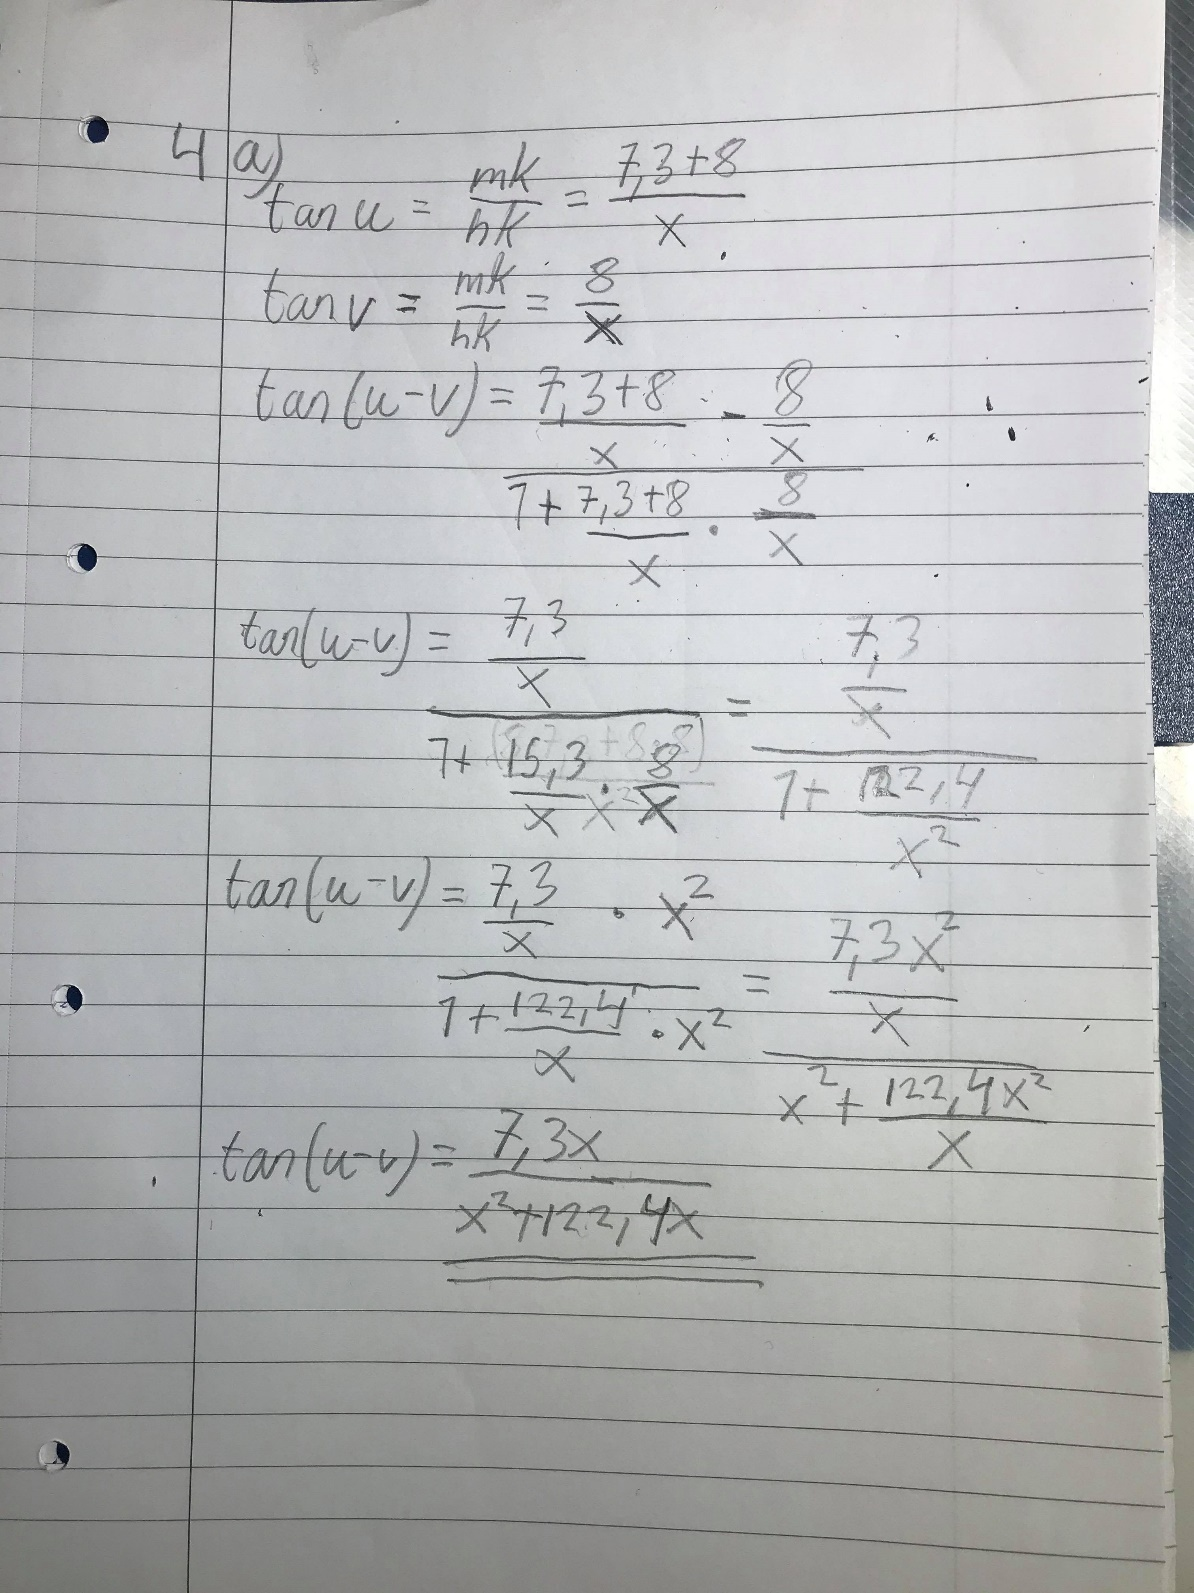 4 a)
tan u = mk/hk = (7,3+8)/x
tan v = mk/hk = 8/x
tan(u-v) = ((7,3+8)/x - 8/x)/(1 + (7,3+8)/x · 8/x)
tan(u-v) = (7,3/x)/(1 + 15,3/x · 8/x) = (7,3/x)/(1 + 122,4/x²)
tan(u-v) = (7,3/x · x²)/(1 + 122,4/x · x²) = (7,3x²/x)/(x² + 122,4x²/x)
tan(u-v) = 7,3x/(x²+122,4x)